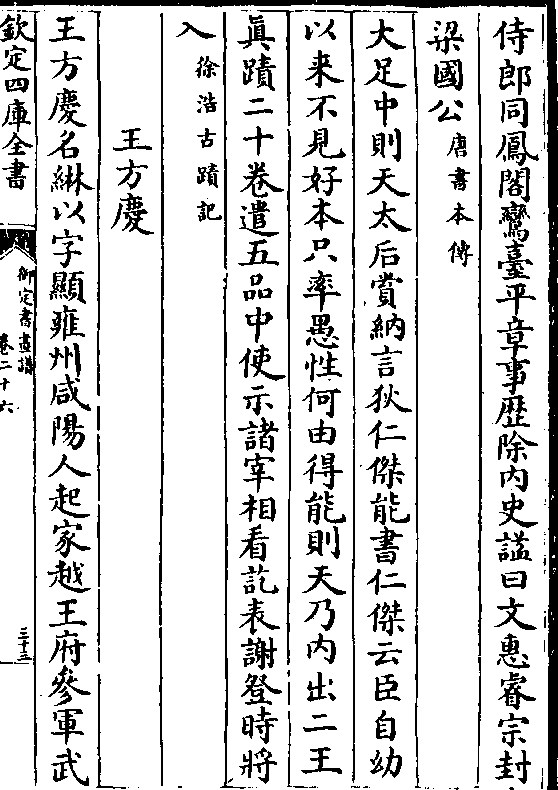 侍郎同鳳閣鸞臺平章事歷除内史謚曰文惠睿宗封
梁國公唐書本傳
大足中則天太后賞納言狄仁傑能書仁傑云臣自幼
以来不見好本只率愚性何由得能則天乃内出二王
眞蹟二十卷遣五品中使示諸宰相看訖表謝登時將
入徐浩古蹟記
王方慶
王方慶名綝以字顯雍州咸陽人起家越王府參軍武
欽定四庫全書
御定書畫譜
卷二十六
三十三